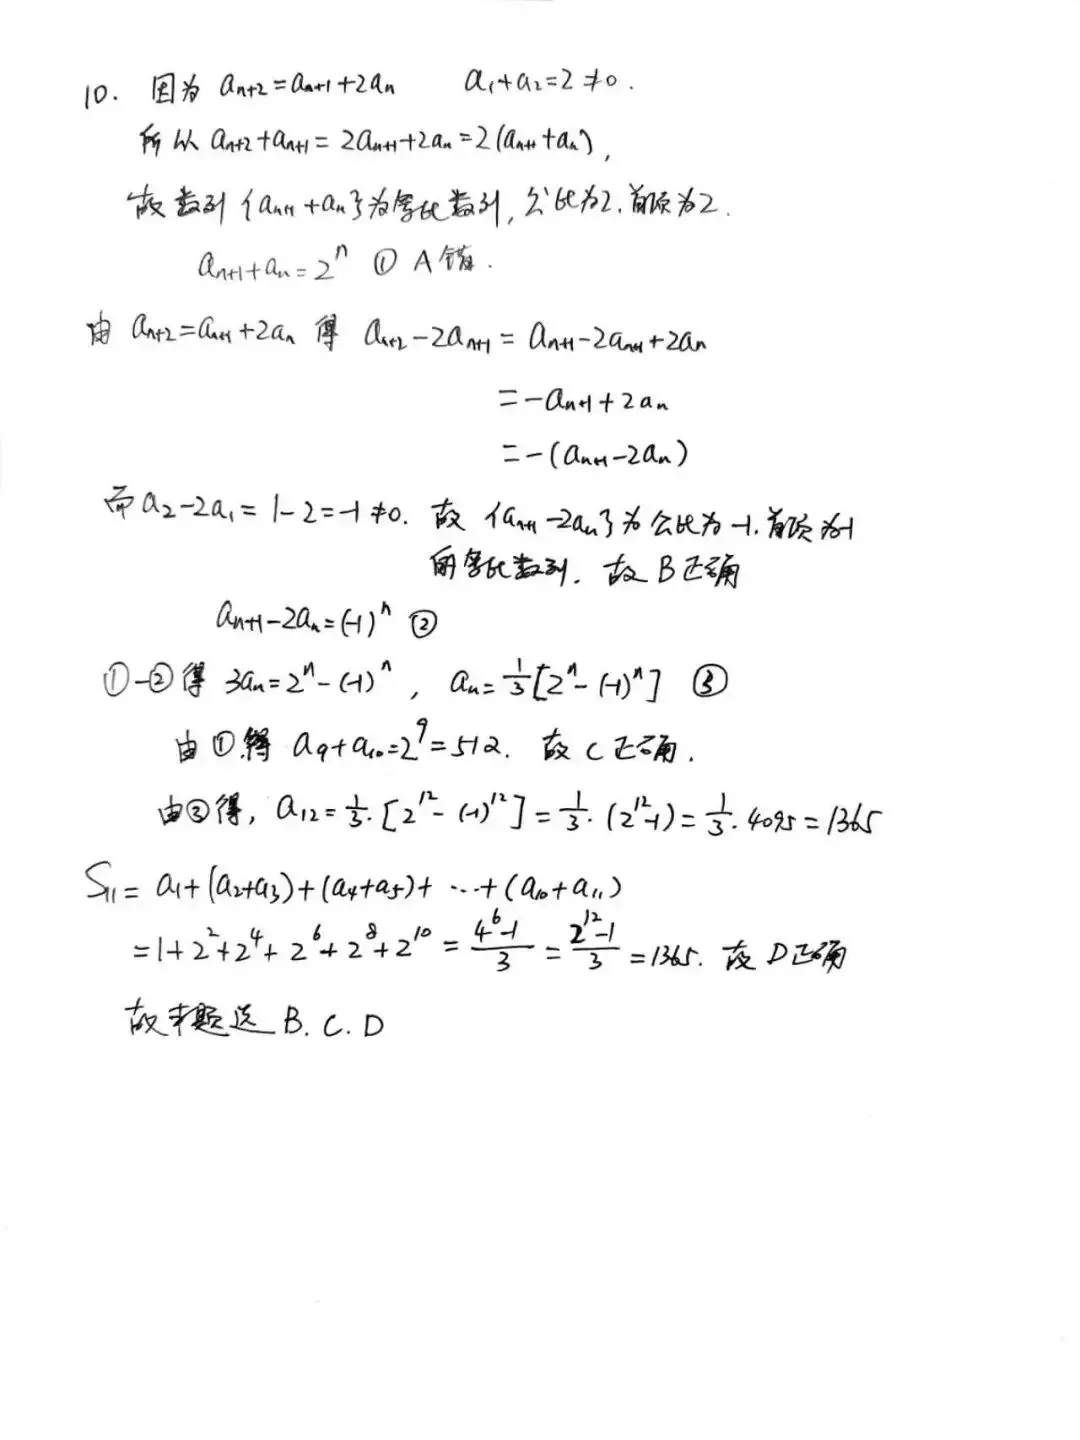 10. 因为 aₙ₊₂=aₙ₊₁+2aₙ a₁+a₂=2≠0.
所以 aₙ₊₂+aₙ₊₁=2aₙ₊₁+2aₙ=2(aₙ₊₁+aₙ),
故数列{aₙ₊₁+aₙ}为等比数列,公比为2.首项为2.
aₙ₊₁+aₙ=2ⁿ ① A错.
由 aₙ₊₂=aₙ₊₁+2aₙ 得 aₙ₊₂-2aₙ₊₁=aₙ₊₁-2aₙ₊₁+2aₙ
=-aₙ₊₁+2aₙ
=-(aₙ₊₁-2aₙ)
而a₂-2a₁=1-2=-1≠0. 故{aₙ₊₁-2aₙ}为公比为-1.首项为-1
的等比数列. 故B正确
aₙ₊₁-2aₙ=(-1)ⁿ ②
①-②得 3aₙ=2ⁿ-(-1)ⁿ, aₙ=1/3[2ⁿ-(-1)ⁿ] ③
由①得 a₉+a₁₀=2⁹=512. 故C正确.
由③得, a₁₂=1/3·[2¹²-(-1)¹²]=1/3·(2¹²-1)=1/3·4095=1365
S₁₁=a₁+(a₂+a₃)+(a₄+a₅)+…+(a₁₀+a₁₁)
=1+2²+2⁴+2⁶+2⁸+2¹⁰=(4⁶-1)/3=(2¹²-1)/3=1365. 故D正确
故本题选B.C.D